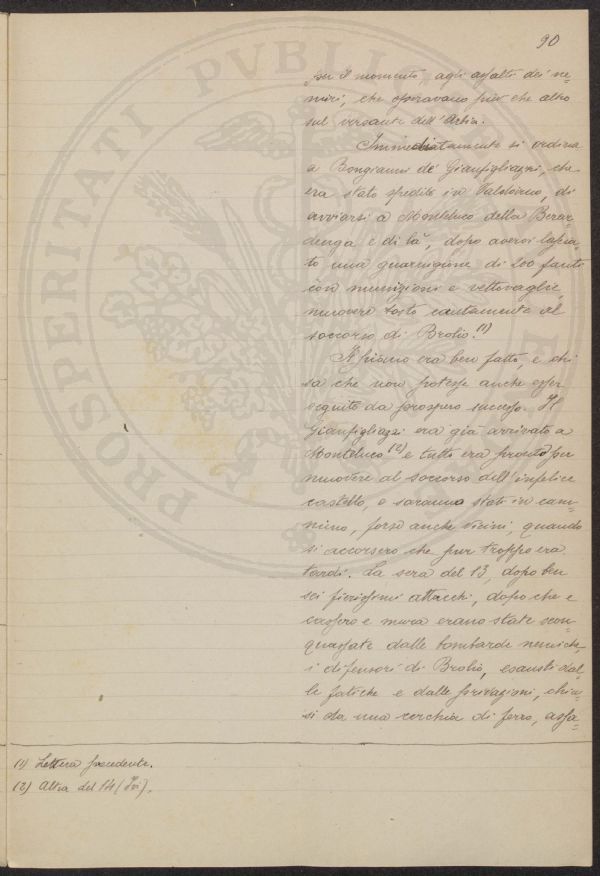 90
su il momento, agli assalti dei ne-
mici, che operavano più che altro
sul versante dell'Arbia.
Immediatamente si ordina
a Bongianni de' Gianfigliazzi, che
era stato spedito in Valdarno, di
avviarsi a Monteluco della Berar-
denga e di là, dopo avervi lascia-
to una guarnigione di 200 fanti
con munizioni e vettovaglie,
muovere tosto cautamente al
soccorso di Brolio.(1)
Il piano era ben fatto, e chi
sa che non potesse anche esser
seguito da prospero successo. Il
Gianfigliazzi era già arrivato a
Monteluco (2) e tutto era pronto per
muovere al soccorso dell'infelice
castello, e saranno stati in cam-
mino, forse anche vicini, quando
si accorsero che pur troppo era
tardi. La sera del 13, dopo ben
sei fierissimi attacchi, dopo che e
cassero e mura erano state scon-
quassate dalle bombarde nemiche,
i difensori di Brolio, esausti dal-
le fatiche e dalle privazioni, chiu-
si da una cerchia di ferro, assa-
(1) Lettera precedente.
(2) Altra del 14 (Ivi).
PROSPERITATI PVBLICAE